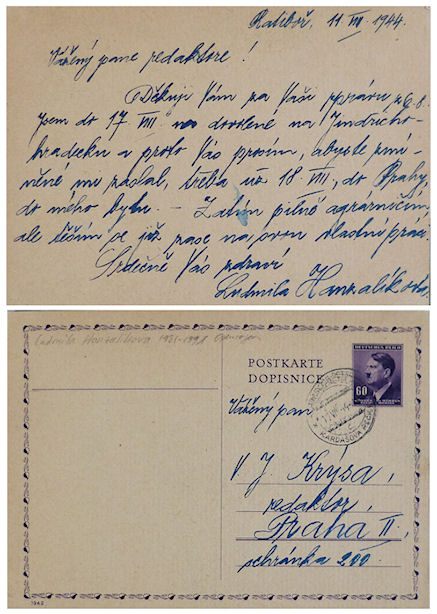 Ratiboř, 11 VIII. 1944.
Vážený pane redaktore!
Děkuji Vám za Vaši zprávu z 6. 8.
Jsem do 17. VIII. na dovolené na Jindřicho-
hradecku a proto Vás prosím, abyste zmí-
něné mi zaslal, třeba už 18 VIII, do Prahy,
do mého bytu. – Zatím pilně agrarničím,
ale těším se již zase na svou vlastní práci.
Srdečně Vás zdraví
Ludmila Hanzalíková
Ludmila Hanzalíková 1921-1998
POSTKARTE
DOPISNICE
DEUTSCHES REICH
60
KARDAŠOVA
Vážený pan
V J Krýsa,
redaktor,
Praha II.
schránka 200.
1942